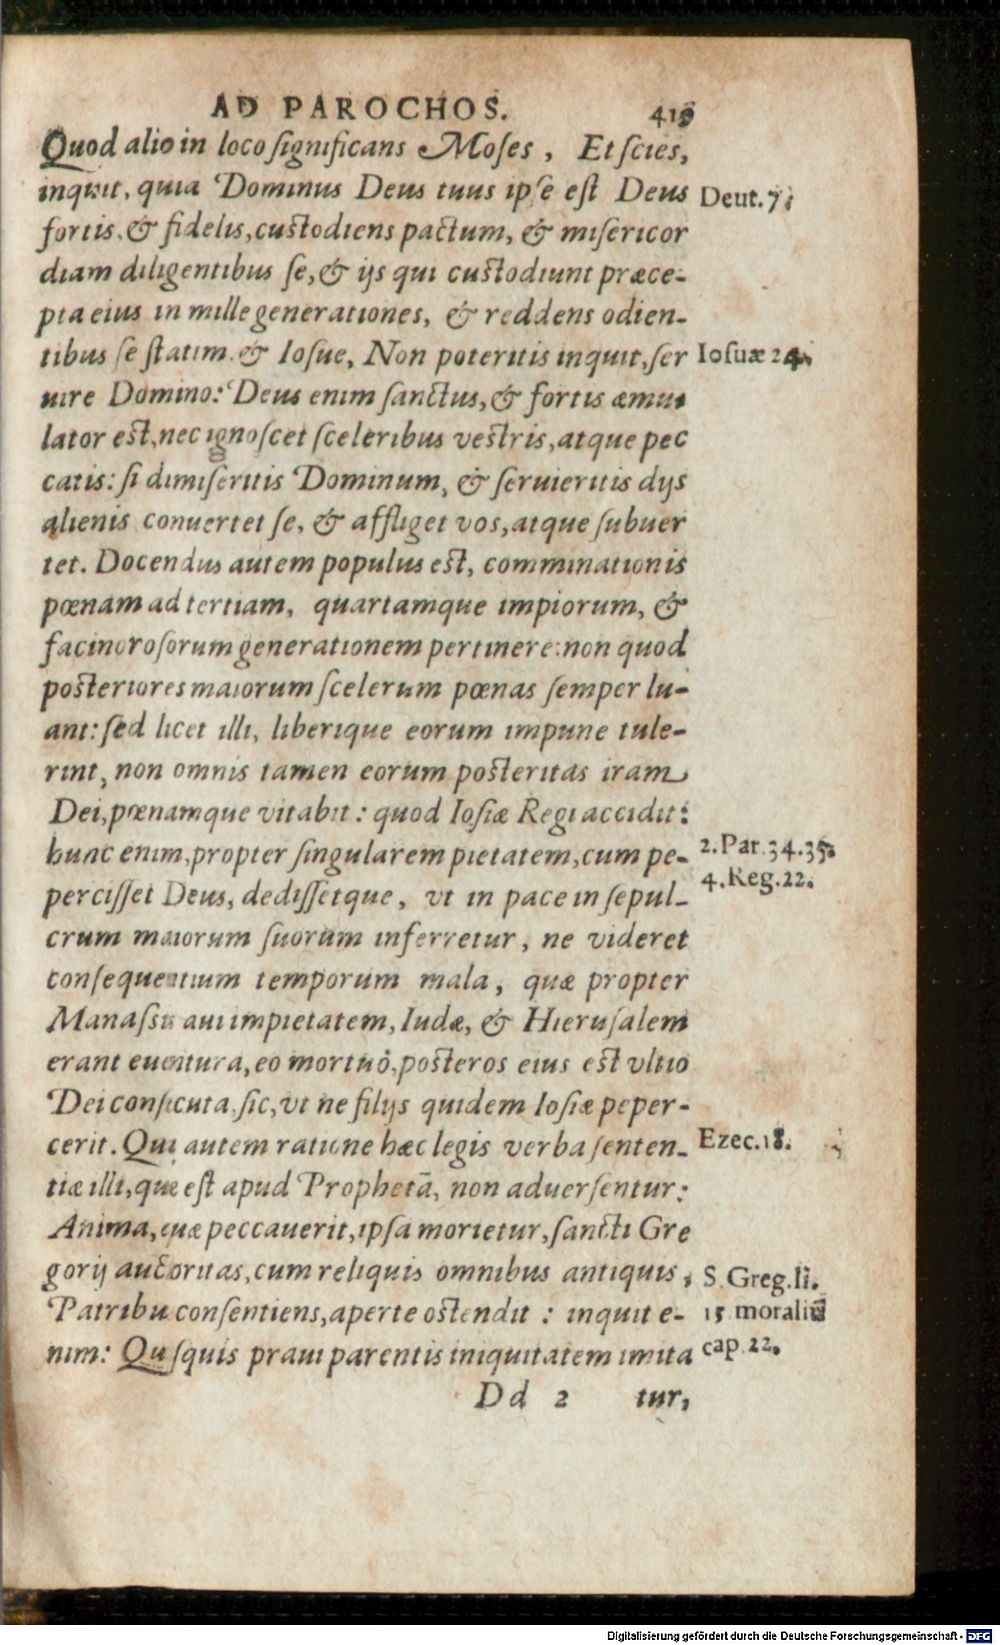 AD PAROCHOS. 419
Quod alio in loco ſignificans Moſes, Et ſcies,
inquit, quia Dominus Deus tuus ipſe eſt Deus
Deut. 7.
fortis, & fidelis, cuſtodiens pactum, & miſericor
diam diligentibus ſe, & ijs qui cuſtodiunt præce-
pta eius in mille generationes, & reddens odien-
tibus ſe ſtatim. & Ioſue, Non poteritis inquit, ſer
Ioſuæ 24.
uire Domino: Deus enim ſanctus, & fortis æmu
lator eſt, nec ignoſcet ſceleribus veſtris, atque pec
catis: ſi dimiſeritis Dominum, & ſeruieritis dijs
alienis conuertet ſe, & affliget vos, atque ſubuer
tet. Docendus autem populus eſt, comminationis
pœnam ad tertiam, quartamque impiorum, &
facinoroſorum generationem pertinere: non quod
poſteriores maiorum ſcelerum pœnas ſemper lu-
ant: ſed licet illi, liberique eorum impune tule-
rint, non omnis tamen eorum poſteritas iram
Dei, pœnamque vitabit: quod Ioſiæ Regi accidit:
hunc enim, propter ſingularem pietatem, cum pe-
2. Par. 34. 35.
4. Reg. 22.
perciſſet Deus, dediſſetque, vt in pace in ſepul-
crum maiorum ſuorum inferretur, ne videret
conſequentium temporum mala, quæ propter
Manaſſis aui impietatem, Iudæ, & Hieruſalem
erant euentura, eo mortuo, poſteros eius eſt vltio
Dei conſecuta, ſic, vt ne filijs quidem Ioſiæ peper-
cerit. Qui autem ratione hæc legis verba ſenten-
Ezec. 18.
tiæ illi, quæ eſt apud Prophetā, non aduerſentur:
Anima, quæ peccauerit, ipſa morietur, ſancti Gre
gorij auctoritas, cum reliquis omnibus antiquis,
S. Greg. li.
Patribu conſentiens, aperte oſtendit: inquit e-
15 moraliū
nim: Quiſquis praui parentis iniquitatem imita
cap. 22.
Dd 2 tur,
Digitalisierung gefördert durch die Deutsche Forschungsgemeinschaft - DFG